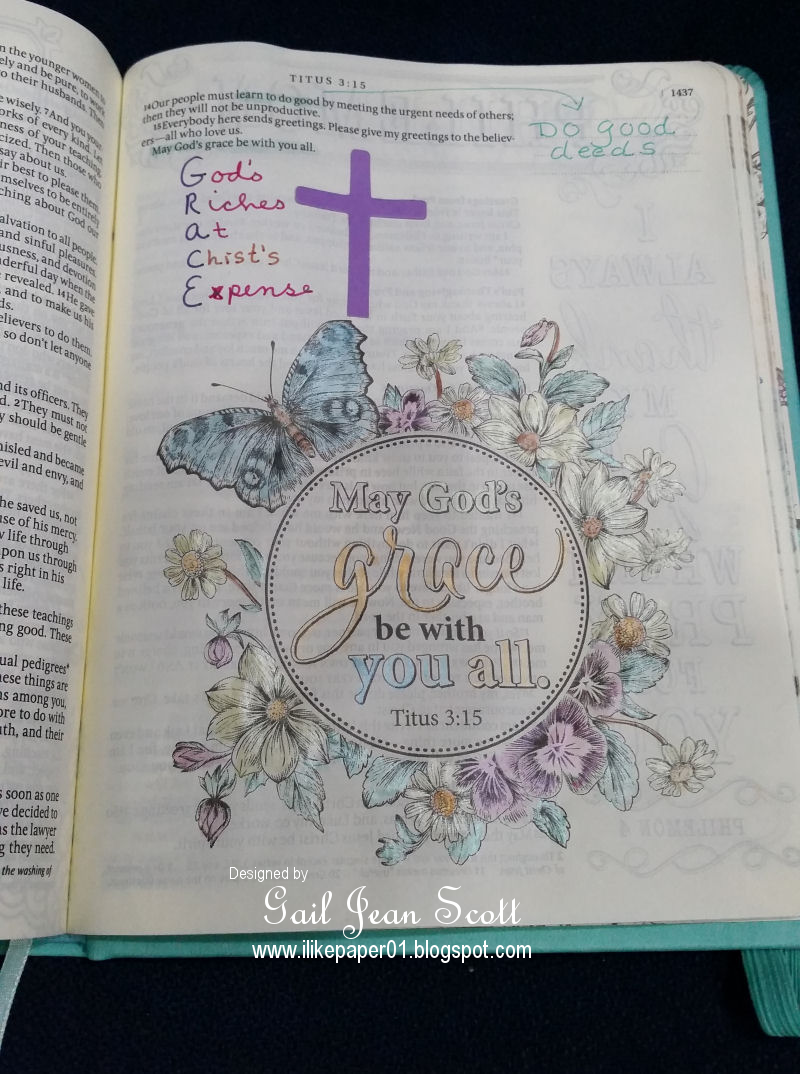 n the younger women to
ely and be pure, to work
o their husbands. Then
e wisely. 7And you your
orks of every kind. Let
ness of your teaching.
cized. Then those who
say about us.
ir best to please them
mselves to be entirely
ching about God our
alvation to all people.
and sinful pleasures.
usness, and devotion
nderful day when the
revealed. 14He gave
and to make us his
ds.
elievers to do them.
so don't let anyone
nd its officers. They
d. 2They must not
y should be gentle
misled and became
evil and envy, and
he saved us, not
use of his mercy.
w life through
pon us through
s right in his
life.
these teachings
ng good. These
ual pedigrees*
hese things are
ns among you,
ore to do with
uth, and their
s soon as one
ve decided to
as the lawyer
g they need.
the washing of
TITUS 3:15
1437
14Our people must learn to do good by meeting the urgent needs of others;
then they will not be unproductive.
15Everybody here sends greetings. Please give my greetings to the believ-
ers—all who love us.
May God's grace be with you all.
Do good
deeds
God's
Riches
at
Chist's
Expense
May God's
grace
be with
you all.
Titus 3:15
Designed by
Gail Jean Scott
www.ilikepaper01.blogspot.com